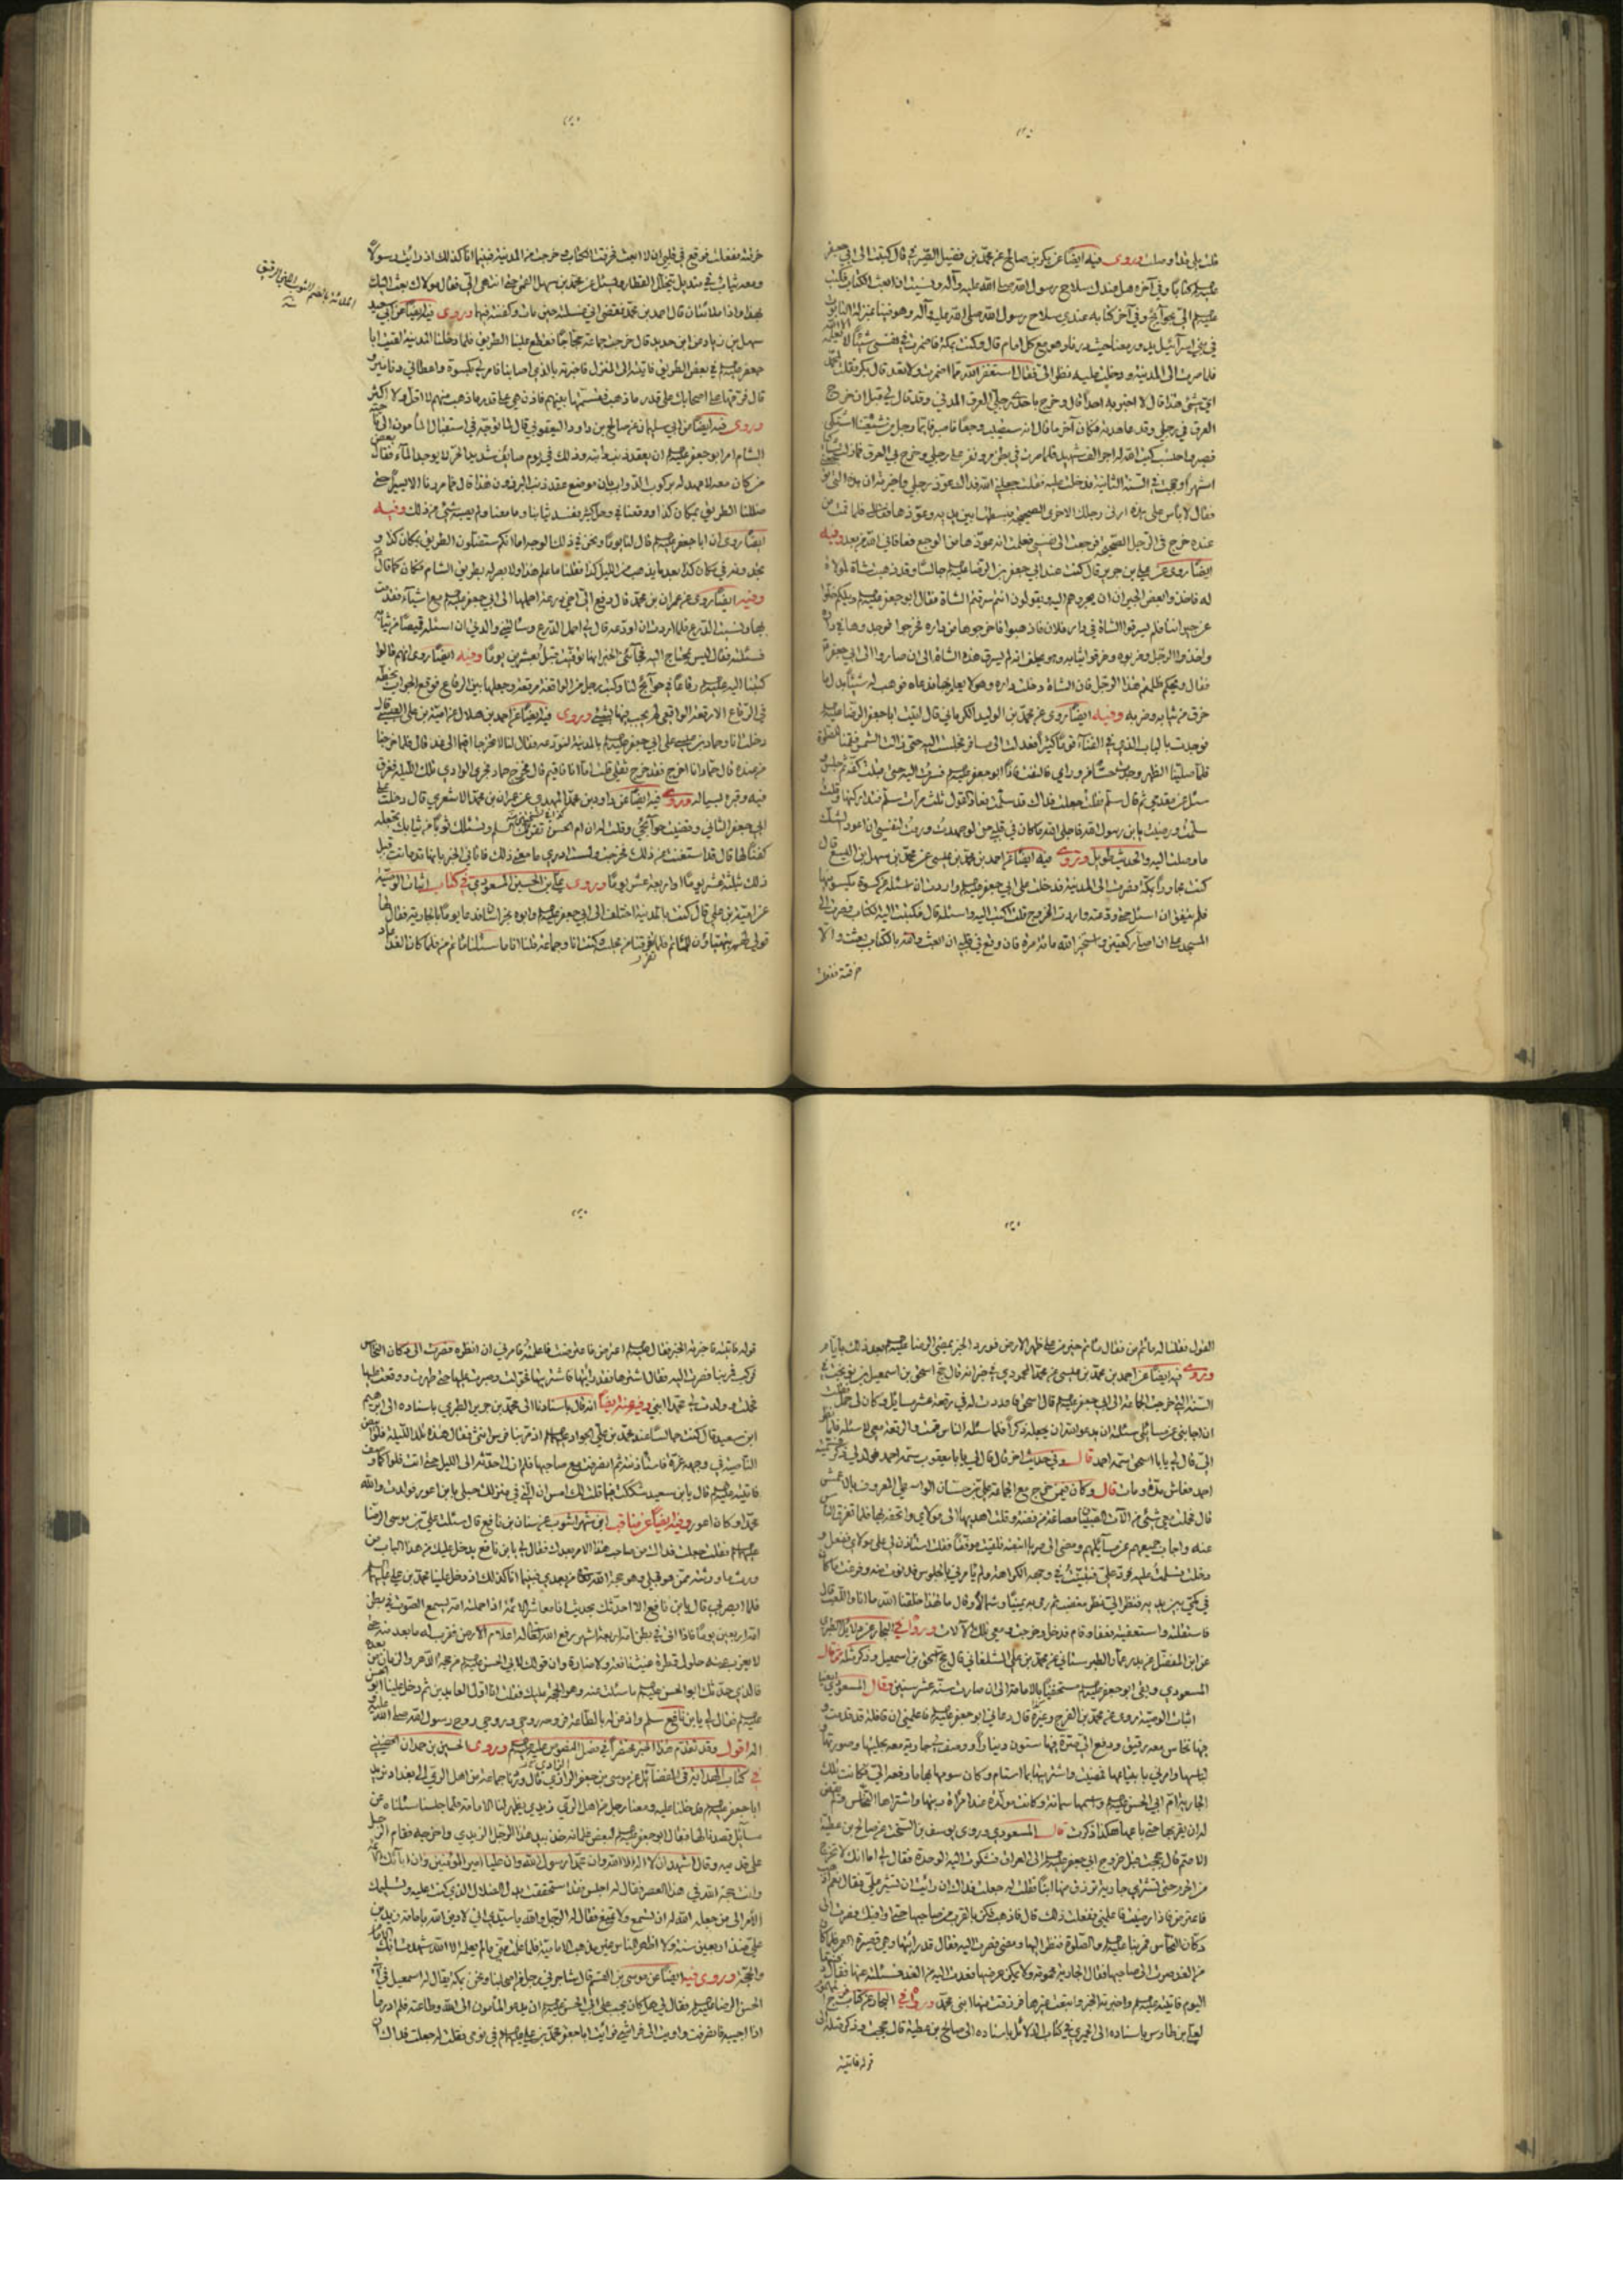 قلت بلى قد وصلت وروى فيه ايضا عن بكر بن صالح عن محمد بن فضيل الصيرفي قال كتبت الى ابي جعفر
عليه السلام كتابا وفي آخره هل عندك سلاح رسول الله صلى الله عليه وآله ونسيت ان ابعث الكتاب فكتب
الي بحوائج وفي آخر كتابه عندي سلاح رسول الله صلى الله عليه وآله وهو فينا بمنزلة التابوت
في بني اسرائيل يدور معنا حيث درنا وهو مع كل امام قال وكنت بمكة فاضمرت في نفسي شيئا لا يعلمه الا الله
فلما صرت الى المدينة ودخلت عليه نظر الي فقال استغفر الله مما اضمرت ولا تعد قال بكر فقلت لمحمد
اي شيء هذا قال لا اخبر به احدا قال وخرج باحدى رجلي العرق المدني وقد قال لي قبل ان خرج
العرق في رجلي وقد عاهدته فكان آخر ما قال انه ستصيب وجعا فاصبر فايما رجل من شيعتنا اشتكى
فصبر واحتسب كتب الله له اجر الف شهيد فلما صرت في بطن مر ضرب على رجلي وخرج بي العرق فما زلت شاكيا
اشهرا وحججت في السنة الثانية فدخلت عليه فقلت جعلني الله فداك عوذ رجلي واخبرته ان هذه التي توجعني
فقال لا بأس على هذه ارني رجلك الاخرى الصحيحة فبسطتها بين يديه وعوذها فلما قمت من
عنده خرج في الرجل الصحيحة فرجعت الى نفسي فعلمت انه عوذها من الوجع فعافاني الله من بعد وفيه
ايضا روى عن علي بن جرير قال كنت عند ابي جعفر بن الرضا عليه السلام جالسا وقد ذهبت شاة لمولاة
له فاخذوا بعض الجيران يجرونهم اليه ويقولون انتم سرقتم الشاة فقال ابو جعفر عليه السلام ويلكم خلوا
عن جيراننا فلم يسرقوا الشاة في دار فلان فاذهبوا فاخرجوها من داره فخرجوا فوجدوها في داره
واخذوا الرجل وضربوه وخرقوا ثيابه وهو يحلف انه لم يسرق هذه الشاة الى ان صاروا الى ابي جعفر
فقال ويحكم ظلمتم هذا الرجل فان الشاة دخلت داره وهو لا يعلم بها فدعاه فوهب له شيئا بدل ما
خرق من ثيابه وضربه وفيه ايضا روى عن محمد بن الوليد الكرماني قال اتيت ابا جعفر الرضا عليه السلام
فوجدت بالباب الذي في الفناء قوما كثيرا فعدلت الى مسافر فجلست اليه حتى زالت الشمس فقمنا للصلوة
فلما صلينا الظهر وجدت حسا من ورائي فالتفت فاذا ابو جعفر عليه السلام فسرت اليه حتى قبلت كفه ثم جلس
سلمت ورضيت يا بن رسول الله فاجلى الله ما كان في قلبي حتى لو جهدت ورمت لنفسي ان اعود الى الشك
ما وصلت اليه والحديث طويل وروى فيه ايضا عن احمد بن محمد بن عيسى عن محمد بن سهل بن اليسع قال
كنت مجاورا بمكة فصرت الى المدينة فدخلت على ابي جعفر عليه السلام واردت ان اسئله عن كسوة يكسونيها
فلم يتفق ان اسئله حتى ودعته واردت الخروج فقلت اكتب اليه واسئله قال فكتبت اليه الكتاب فصرت الى
المسجد على ان اصلي ركعتين واستخير الله مائة مرة فان وقع في قلبي ان ابعث والله بالكتاب بعثت والا
خرقته ففعلت
خرقته ففعلت فوقع في قلبي ان لا ابعث فخرقت الكتاب وخرجت من المدينة فبينما انا كذلك اذ رايت رسولا
ومعه ثياب في منديل يتخلل القطار ويسئل عن محمد بن سهل القمي حتى انتهى الي فقال مولاك بعث اليك
بهذا واذا ملائتان قال احمد بن محمد فقضى اني غسلته حين مات وكفنته فيهما وروى فيه ايضا عن ابي سعيد
سهل بن زياد عن ابن حديد قال خرجت جماعة حجاجا فقطع علينا الطريق فلما دخلنا المدينة لقيت ابا
جعفر عليه السلام في بعض الطريق فاتيته الى المنزل فاخبرته بالذي اصابنا فامر لي بكسوة واعطاني دنانير
قال فرقها على اصحابك على قدر ما ذهب فقسمتها بينهم فاذن هي على قدر ما ذهب منهم لا اقل ولا اكثر
وروى فيه ايضا عن ابي سليمان عن صالح بن داود اليعقوبي قال لما توجه في استقبال المأمون الى ناحية
الشام امر ابو جعفر عليه السلام ان يعقد ذنب دابته وذلك في يوم صائف شديد الحر لا يوجد الماء فقال بعض
من كان معه لا عهد له بركوب الدواب بان موضع عقد ذنب البرذون غير هذا قال فما مررنا الا يسيرا حتى
ضللنا الطريق بمكان كذا ووقعنا في وحل كثير ففسد ثيابنا وما معنا ولم يصبه شيء من ذلك وفيه
ايضا روى ان ابا جعفر عليه السلام قال لنا يوما ونحن في ذلك الوجه اما انكم ستضلون الطريق بمكان كذا و
تجدونه في مكان كذا بعد ما يذهب من الليل كذا فقلنا ما علم هذا ولا بصر له بطريق الشام فكان كما قال
وفيه ايضا روى عن عمران بن محمد قال دفع الي اخي درعا احملها الى ابي جعفر عليه السلام مع اشياء فقدمت
بها ونسيت الدرع فلما اردت ان اودعه قال لي احمل الدرع وسئلتني والدتي ان اسئله قميصا من ثيابه
فسئلته فقال ليس يحتاج اليه فجاءني الخبر انها توفيت قبل بعشرين يوما وفيه ايضا روى انهم قالوا
كتبنا اليه عليه السلام رقاعا في حوائج لنا وكتب رجل من الواقفة رقعة وجعلها بين الرقاع فوقع الجواب بخطه
في الرقاع الا رقعة الواقفي لم يجب فيها بشيء وروى فيه ايضا عن احمد بن هلال عن امية بن علي القيسي قال
دخلت انا وحماد بن عيسى على ابي جعفر عليه السلام بالمدينة لنودعه فقال لنا لا تخرجا اقيما الى غد قال فلما خرجنا
من عنده قال حماد انا اخرج فقد خرج ثقلي قلت اما انا فاقيم قال فخرج حماد فجرى الوادي تلك الليلة فغرق
فيه وقبره بسيالة وروى فيه ايضا عن داود بن محمد النهدي عن عمران بن محمد الاشعري قال دخلت على
ابي جعفر الثاني وقضيت حوائجي وقلت له ان ام الحسن تقرئك السلم وتسئلك ثوبا من ثيابك تجعله
كفنا لها قال قد استغنت عن ذلك فخرجت ولست ادري ما معنى ذلك فاتاني الخبر بانها قد ماتت قبل
ذلك بثلثة عشر يوما او اربعة عشر يوما وروى علي بن الحسين المسعودي في كتاب اثبات الوصية
عن امية بن علي قال كنت بالمدينة اختلف الى ابي جعفر عليه السلام وابوه بخراسان فدعا يوما بالجارية فقال لها
قولي لهم يتهيأون للمأتم فلما تفرقنا من مجلسه وكنت انا وجماعة قلنا انا ما سئلنا مأتم من فلما كان الغد اعاد
القول فقلنا له مأتم من فقال مأتم خير من على ظهر الارض فورد الخبر بمضي الرضا عليه السلام بعد ذلك بايام
وروى فيه ايضا عن احمد بن محمد بن عيسى عن محمد المحمودي
السنة التي خرجت الجماعة الى ابي جعفر عليه السلام قال اسحق فاعددت له في رقعة عشر مسائل وكان لي حمل فقلت
ان اجابني عن مسائلي سئلته ان يدعو الله ان يجعله ذكرا فلما سئله الناس قمت والرقعة معي لاسئله فلما نظر
الي قال لي يا ابا اسحق سمه احمد قال وفي حديث اخر قال قال لي يا ابا يعقوب سمه احمد فولد لي ذكر فسميته
احمد فعاش مدة ومات قال وكان ممن خرج مع الجماعة علي بن حسان الواسطي المعروف بالعمش
قال حملت معي شيئا من آلات الصبيان مصاغة من فضة وقلت اهديها الى مولاي واتحفه بها فلما تفرق الناس
عنه واجاب جميعهم عن مسائلهم ومضى الى صريا اتبعته فلقيت موفقا فقلت استأذن لي على مولاي ففعل و
دخلت فسلمت عليه فرد علي فتبينت في وجهه الكراهة ولم يأمرني بالجلوس فدنوت منه وفرغت ما كان
في كمي بين يديه فنظر الي نظر مغضب ثم رمى به يمينا وشمالا وقال ما لهذا خلقنا الله ما انا واللعب
فاستقلته واستعفيته فعفا وقام فدخل وخرجت ومعي تلك الآلات وروى في البحار عن دلائل الطبري
عن ابي المفضل عن بدر بن عمار الطبرستاني عن محمد بن علي الشلمغاني قال حج اسحق بن اسمعيل وذكر مثله قال
المسعودي وبقي ابو جعفر عليه السلام مستخفيا بالامامة الى ان صارت سنه عشر سنين وقال المسعودي ايضا
اثبات الوصية روى عن محمد بن الفرج وغيره قال دعاني ابو جعفر عليه السلام فاعلمني ان قافلة قد قدمت و
فيها نخاس معه رقيق ودفع الي صرة فيها ستون دينارا ووصف لي جارية معه بحليتها وصورتها و
لباسها وامرني بابتياعها فمضيت واشتريتها بما استام وكان سومها بها ما دفعه الي فكانت تلك
الجارية ام ابي الحسن عليه السلام واسمها سمانة وكانت مولدة عند امرأة ربتها واشتراها النخاس ولم يقض
له ان يقربها حتى باعها هكذا ذكرت قال المسعودي وروى يوسف بن السخت عن صالح بن عطية
الاصم قال حججت قبل خروج ابي جعفر عليه السلام الى العراق فشكوت اليه الوحدة فقال لي اما انك لا تخرج
من الحرم حتى تشتري جارية ترزق منها ابنا فقلت له جعلت فداك ان رأيت ان تشير علي فقال نعم
فاعترض فاذا رضيت فاعلمني ففعلت ذلك قال فاذهب فكن بالقرب من صاحبها حتى اوافيك فصرت الى
دكان النخاس فمر بنا عليه السلام والصلوة فنظر اليها ومضى فصرت اليه فقال قد رايتها وهي قصيرة العمر فلما كان
من الغد صرت الى صاحبها فقال الجارية محمومة ولا يمكن عرضها فعدت اليه من الغد فسئلته عنها فقال دفنتها
اليوم فاتيته عليه السلام واخبرته الخبر وابتعت غيرها فرزقت منها ابني محمد وروى في البحار عن كتاب النجوم
لعلي بن طاوس باسناده الى الحميري في كتاب الدلائل باسناده الى صالح بن عطية قال حججت وذكر مثله الى
قوله فاتيته
قوله فاتيته فاخبرته الخبر فقال عليه السلام اعترض فاعترضت فاعلمته فامرني ان انتظره فصرت الى دكان النخاس
فركب فمر بنا فصرت اليه فقال اشترها فقد رايتها فاشتريتها فحولت وصبرت عليها حتى طهرت ووقعت عليها
فحملت وولدت لي محمد ابني وفيه عنه ايضا انه قال باسنادنا الى محمد بن جرير الطبري باسناده الى ابراهيم
ابن سعيد قال كنت جالسا عند محمد بن علي الجواد عليهما السلام اذ مر بنا فرس انثى فقال هذه تلد الليلة فلوا ابيض
الناصية في وجهه غرة فاستأذنته ثم انصرفت مع صاحبها فلم ازل احدثه الى الليل حتى اتت فلوا كما وصف
فاتيته عليه السلام قال يا بن سعيد شككت فيما قلت لك امس ان التي في منزلك حبلى بابن اعور فولدت والله
محمدا وكان اعور وفيه ايضا عن مناقب ابن شهر اشوب عن سنان بن نافع قال سئلت علي بن موسى الرضا
عليهما السلام فقلت جعلت فداك من صاحب هذا الامر بعدك فقال لي يا بن نافع يدخل عليك من هذا الباب من
ورث ما ورثته ممن هو قبلي وهو حجة الله تعالى من بعدي فبينما انا كذلك اذ دخل علينا محمد بن علي عليهما السلام
فلما بصر بي قال يا بن نافع الا احدثك بحديث انا معاشر الائمة اذا حملته امه يسمع الصوت في بطن
امه اربعين يوما فاذا اتى في بطن امه اربعة اشهر رفع الله تعالى له اعلام الارض فقرب له ما بعد عنه حتى
لا يعزب عنه حلول قطرة غيث نافعة ولا ضارة وان قولك لابي الحسن عليه السلام من حجة الدهر والزمان من بعده
فالذي حدثك ابو الحسن عليه السلام ما سئلت عنه وهو الحجة عليك فقلت انا اول العابدين ثم دخل علينا ابو الحسن
عليه السلام فقال لي يا بن نافع سلم واذعن له بالطاعة فروحه روحي وروحي روح رسول الله صلى الله عليه و
اله اقول وقد تقدم هذا الخبر مختصرا في فصل النصوص عليه عليه السلام وروى الحسين بن حمدان الحضيني
في كتاب الهداية في الفضائل عن موسى بن جعفر الرازي قال وردنا جماعة من اهل الري الى بغداد نريد
ابا جعفر عليه السلام فدخلنا عليه ومعنا رجل من اهل الري زيدي يظهر لنا الامامة فلما جلسنا سئلناه عن
مسائل قصدنا لها فقال ابو جعفر عليه السلام لبعض غلمانه خذ بيد هذا الرجل الزيدي واخرجه فقام الرجل
على قدميه وقال اشهد ان لا اله الا الله وان محمدا رسول الله وان عليا امير المؤمنين وان اباءك الائمة
وانت حجة الله في هذا العصر فقال له اجلس فقد استحققت بترك الضلال الذي كنت عليه وتسليمك
الامر الى من جعله الله له ان تسمع ولا تمنع فقال له الرجل والله يا سيدي اني لادين الله بامامة زيد بن
علي منذ اربعين سنة ولا اظهر للناس غير مذهب الامامية فلما علمت مني ما لم يعلمه الا الله شهدت انك الامام
والحجة وروى فيه ايضا عن موسى بن القسم قال شاجرني رجل من اصحابنا ونحن بمكة يقال له اسمعيل في ابي
الحسن الرضا عليه السلام فقال لي هل كان يجب على ابي الحسن عليه السلام ان يدعو المأمون الى الله وطاعته فلم ادر ما
اذا اجيبه فانصرفت واويت الى فراشي فرأيت ابا جعفر محمد بن علي عليهما السلام في نومي فقلت له جعلت فداك